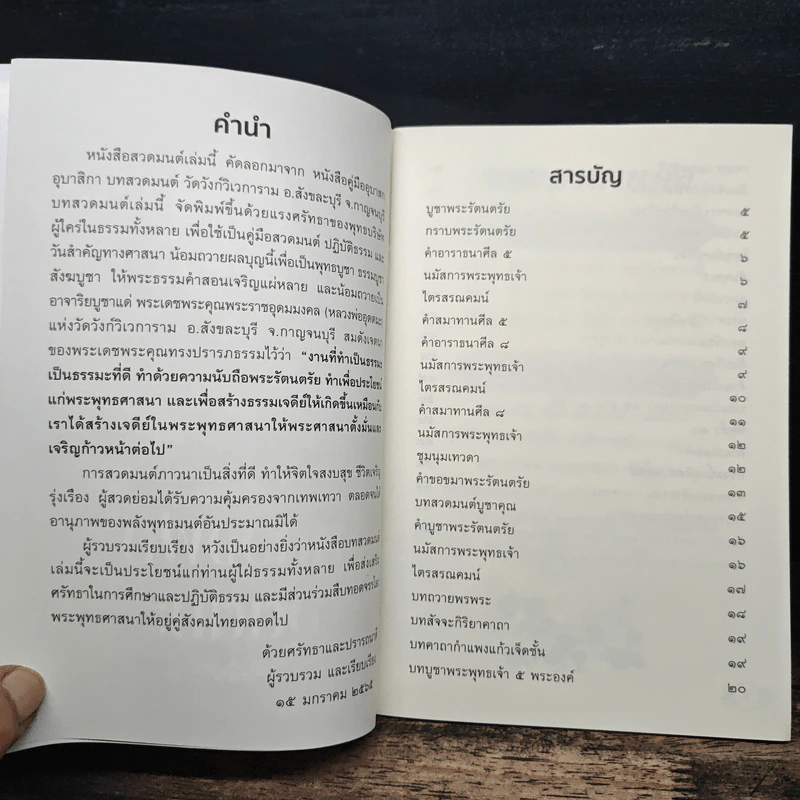 คำนำ
หนังสือสวดมนต์เล่มนี้ คัดลอกมาจาก หนังสือคู่มืออุบาสก
อุบาสิกา บทสวดมนต์ วัดวังก์วิเวการาม อ.สังขละบุรี จ.กาญจนบุรี
บทสวดมนต์เล่มนี้ จัดพิมพ์ขึ้นด้วยแรงศรัทธาของพุทธบริษัท
ผู้ใคร่ในธรรมทั้งหลาย เพื่อใช้เป็นคู่มือสวดมนต์ ปฏิบัติธรรม และ
วันสำคัญทางศาสนา น้อมถวายผลบุญนี้เพื่อเป็นพุทธบูชา ธรรมบูชา
สังฆบูชา ให้พระธรรมคำสอนเจริญแผ่หลาย และน้อมถวายเป็น
อาจาริยบูชาแด่ พระเดชพระคุณพระราชอุดมมงคล (หลวงพ่ออุตตมะ)
แห่งวัดวังก์วิเวการาม อ.สังขละบุรี จ.กาญจนบุรี สมดังเจตนา
ของพระเดชพระคุณทรงปรารภธรรมไว้ว่า "งานที่ทำเป็นธรรมะ
เป็นธรรมะที่ดี ทำด้วยความนับถือพระรัตนตรัย ทำเพื่อประโยชน์
แก่พระพุทธศาสนา และเพื่อสร้างธรรมเจดีย์ให้เกิดขึ้นเหมือนกับ
เราได้สร้างเจดีย์ในพระพุทธศาสนาให้พระศาสนาตั้งมั่นและ
เจริญก้าวหน้าต่อไป"
การสวดมนต์ภาวนาเป็นสิ่งที่ดี ทำให้จิตใจสงบสุข ชีวิตเจริญ
รุ่งเรือง ผู้สวดย่อมได้รับความคุ้มครองจากเทพเทวา ตลอดจนได้
อานุภาพของพลังพุทธมนต์อันประมาณมิได้
ผู้รวบรวมเรียบเรียง หวังเป็นอย่างยิ่งว่าหนังสือบทสวดมนต์
เล่มนี้จะเป็นประโยชน์แก่ท่านผู้ใฝ่ธรรมทั้งหลาย เพื่อส่งเสริม
ศรัทธาในการศึกษาและปฏิบัติธรรม และมีส่วนร่วมสืบทอดจรรโลง
พระพุทธศาสนาให้อยู่คู่สังคมไทยตลอดไป
ด้วยศรัทธาและปรารถนาดี
ผู้รวบรวม และเรียบเรียง
๑๕ มกราคม ๒๕๖๕
สารบัญ
บูชาพระรัตนตรัย ๕
กราบพระรัตนตรัย ๕
คำอาราธนาศีล ๕ ๖
นมัสการพระพุทธเจ้า ๖
ไตรสรณคมน์ ๗
คำสมาทานศีล ๕ ๘
คำอาราธนาศีล ๘ ๙
นมัสการพระพุทธเจ้า ๙
ไตรสรณคมน์ ๑๐
คำสมาทานศีล ๘ ๑๑
นมัสการพระพุทธเจ้า ๑๒
ชุมนุมเทวดา ๑๒
คำขอขมาพระรัตนตรัย ๑๓
บทสวดมนต์บูชาคุณ ๑๕
คำบูชาพระรัตนตรัย ๑๖
นมัสการพระพุทธเจ้า ๑๖
ไตรสรณคมน์ ๑๗
บทถวายพรพระ ๑๘
บทสัจจะกิริยาคาถา ๑๙
บทคาถากำแพงแก้วเจ็ดชั้น ๑๙
บทบูชาพระพุทธเจ้า ๕ พระองค์ ๒๐